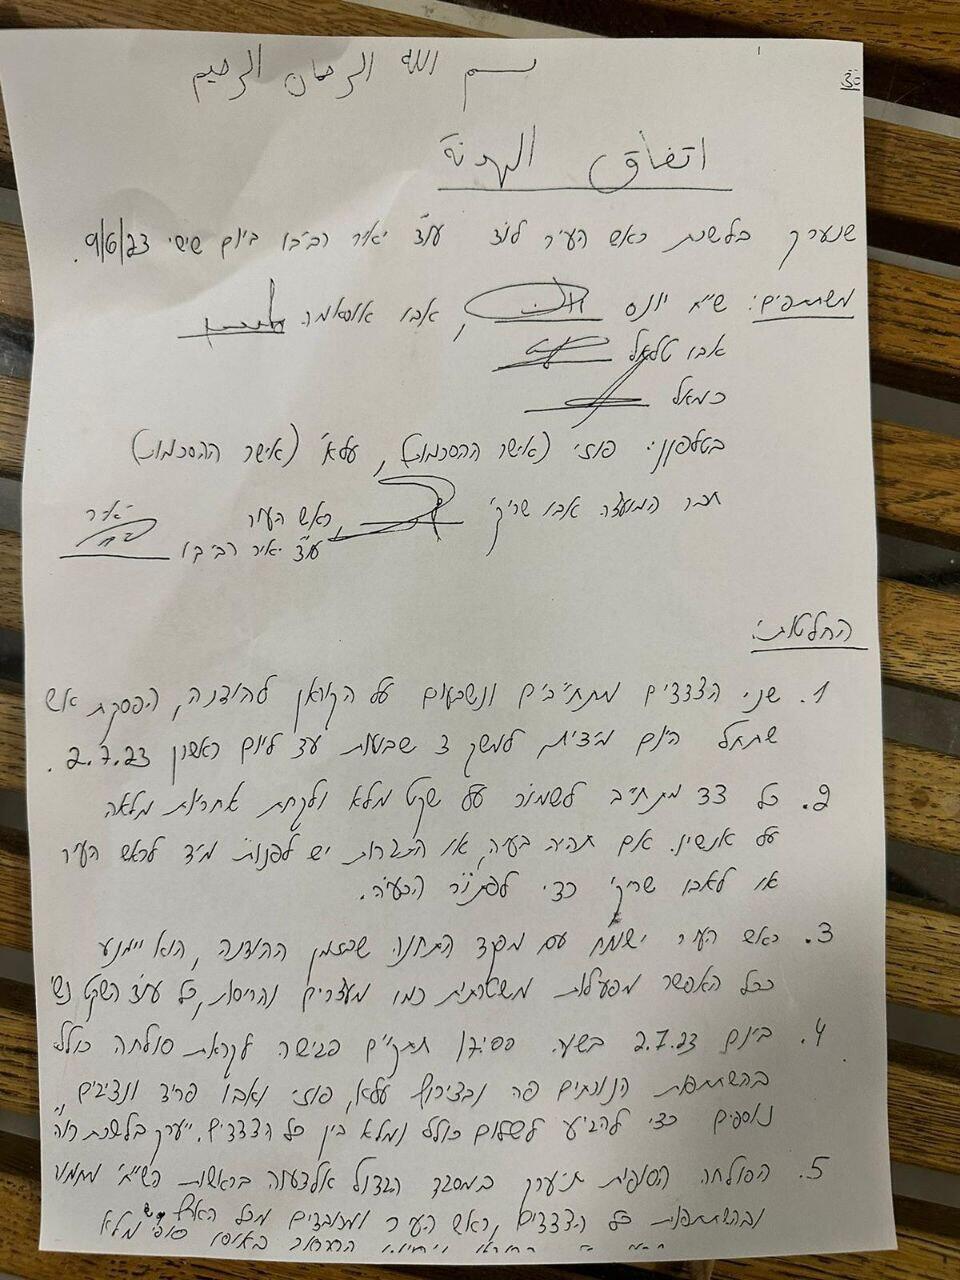 בס״ד
بسم الله الرحمان الرحيم
اتفاق الهدنة
שנערך בלשכת ראש העיר לוד עו״ד יאיר רביבו ביום שישי 9/6/23.
משתתפים: שייח יונס, אבו אוסאמה
אבו טלאל
כמאל
בטלפון: פוזי (אישר ההסכמות), עלא (אישר ההסכמות)
חבר המועצה אבו שריקי, ראש העיר יאיר
עו״ד יאיר רביבו
החלטות:
1. שני הצדדים מתחייבים ונשבעים על הקוראן להודנה, הפסקת אש
שתחל היום מיידית למשך 3 שבועות עד ליום ראשון 2.7.23.
2. כל צד מתחייב לשמור על שקט מלא ולקחת אחריות מלאה
על אנשיו. אם תהיה בעיה, או התגרות יש לפנות מיד לראש העיר
או לאבו שריקי כדי לפתור הבעיה.
3. ראש העיר ישוחח עם מפקד התחנה שבזמן ההודנה, הוא יימנע
ככל האפשר מפעילות משטרתית כמו מעצרים והריסות, כל עוד השקט נש׳
4. ביום 2.7.23 בשעה תתקיים פגישה לקראת סולחה כולל
בהשתתפות הנוכחים פה ובצירוף עלא, פוזי ואבו פריד ונציגים
נוספים כדי להגיע לשלום כולל ומלא בין כל הצדדים. ייערך בלשכת רוה״ע
5. הסולחה הסופית תיערך במסגד הגדול אלדעוה בראשות השייח׳
ובהשתתפות כל הצדדים, ראש העיר ומכובדים מכל הארץ
באופן סופי מלא